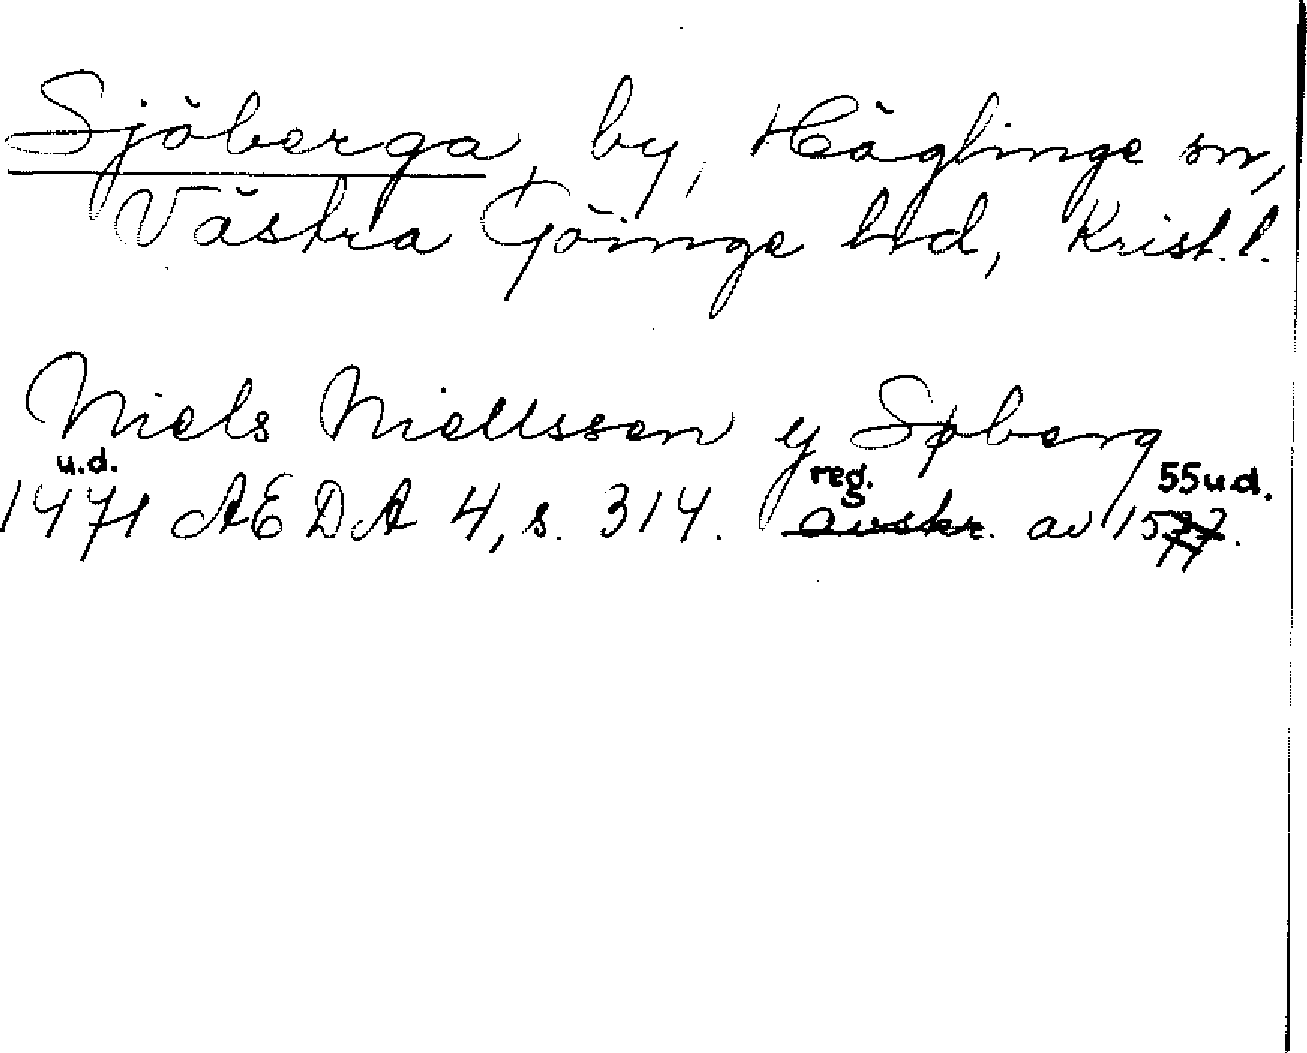 Sjöberga, by, Häglinge sn,
Västra Göinge hd, Krist. l.
Niels Niellssen y Søberg
u.d. reg. 55 u.d.
1471 AEDA 4, s. 314. avskr. av 1577.